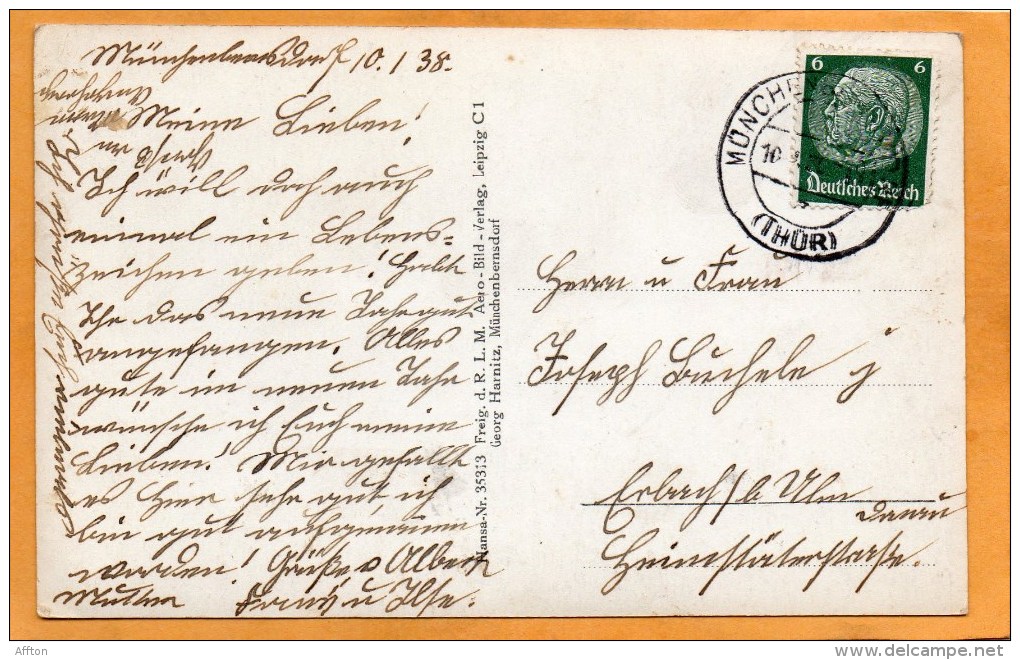 Münchenbernsdorf 10.1.38.
Meine Lieben!
Ich will doch auch
einmal ein Lebens=
zeichen geben! Habt
Ihr das neue Jahr gut
angefangen. Alles
gute im neuen Jahr
wünsche ich Euch meine
Lieben! Mir gefällt
es hier sehr gut, ich
bin gut aufgenommen
worden! Grüße v Albert
Mutter Franz u Ilse.
Hansa-Nr. 35313 Freig. d. R. L. M. Aero-Bild-Verlag, Leipzig C 1
Georg Harnitz, Münchenbernsdorf
6 6
Deutsches Reich
MÜNCHE
10
(THÜR)
Herrn u Frau
Joseph Buchele j
Erbach/b Ulm
Donau
Heimstäterstraße.
Affton
delcampe.net